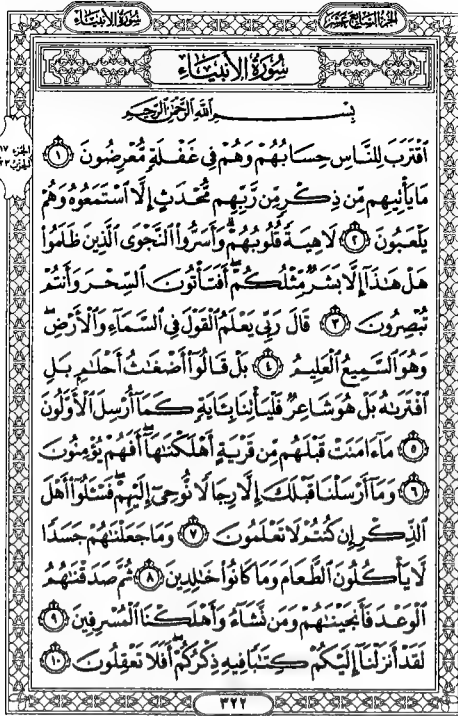 سُورَةُ الأَنبِيَاء
الجُزءُ السَّابِعَ عَشَرَ
سُورَةُ الأَنبِيَاء
بِسْمِ اللَّهِ الرَّحْمَٰنِ الرَّحِيمِ
ٱقْتَرَبَ لِلنَّاسِ حِسَابُهُمْ وَهُمْ فِي غَفْلَةٍ مُّعْرِضُونَ ١
مَا يَأْتِيهِم مِّن ذِكْرٍ مِّن رَّبِّهِم مُّحْدَثٍ إِلَّا ٱسْتَمَعُوهُ وَهُمْ
يَلْعَبُونَ ٢ لَاهِيَةً قُلُوبُهُمْ ۗ وَأَسَرُّوا۟ ٱلنَّجْوَى ٱلَّذِينَ ظَلَمُوا۟
هَلْ هَـٰذَآ إِلَّا بَشَرٌ مِّثْلُكُمْ ۖ أَفَتَأْتُونَ ٱلسِّحْرَ وَأَنتُمْ
تُبْصِرُونَ ٣ قَالَ رَبِّي يَعْلَمُ ٱلْقَوْلَ فِي ٱلسَّمَآءِ وَٱلْأَرْضِ ۖ
وَهُوَ ٱلسَّمِيعُ ٱلْعَلِيمُ ٤ بَلْ قَالُوٓا۟ أَضْغَـٰثُ أَحْلَـٰمٍ بَلِ
ٱفْتَرَىٰهُ بَلْ هُوَ شَاعِرٌ فَلْيَأْتِنَا بِـَٔايَةٍ كَمَآ أُرْسِلَ ٱلْأَوَّلُونَ
٥ مَآ ءَامَنَتْ قَبْلَهُم مِّن قَرْيَةٍ أَهْلَكْنَـٰهَآ ۖ أَفَهُمْ يُؤْمِنُونَ
٦ وَمَآ أَرْسَلْنَا قَبْلَكَ إِلَّا رِجَالًا نُّوحِىٓ إِلَيْهِمْ ۖ فَسْـَٔلُوٓا۟ أَهْلَ
ٱلذِّكْرِ إِن كُنتُمْ لَا تَعْلَمُونَ ٧ وَمَا جَعَلْنَـٰهُمْ جَسَدًا
لَّا يَأْكُلُونَ ٱلطَّعَامَ وَمَا كَانُوا۟ خَـٰلِدِينَ ٨ ثُمَّ صَدَقْنَـٰهُمُ
ٱلْوَعْدَ فَأَنجَيْنَـٰهُمْ وَمَن نَّشَآءُ وَأَهْلَكْنَا ٱلْمُسْرِفِينَ ٩
لَقَدْ أَنزَلْنَآ إِلَيْكُمْ كِتَـٰبًا فِيهِ ذِكْرُكُمْ ۖ أَفَلَا تَعْقِلُونَ ١٠
٣٢٢